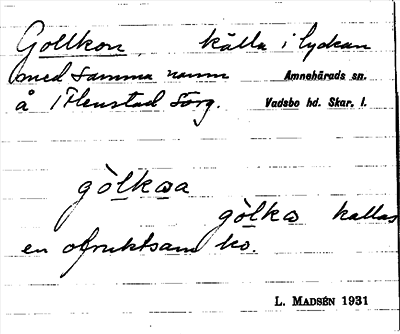 Gollkon, källa i lyckan
med samma namn Amnehärads sn.
å Flenstad Sörg. Vadsbo hd. Skar. l.
gòlkɷa
gòlkɷ kallas
en ofruktsam ko.
L. MADSÉN 1931